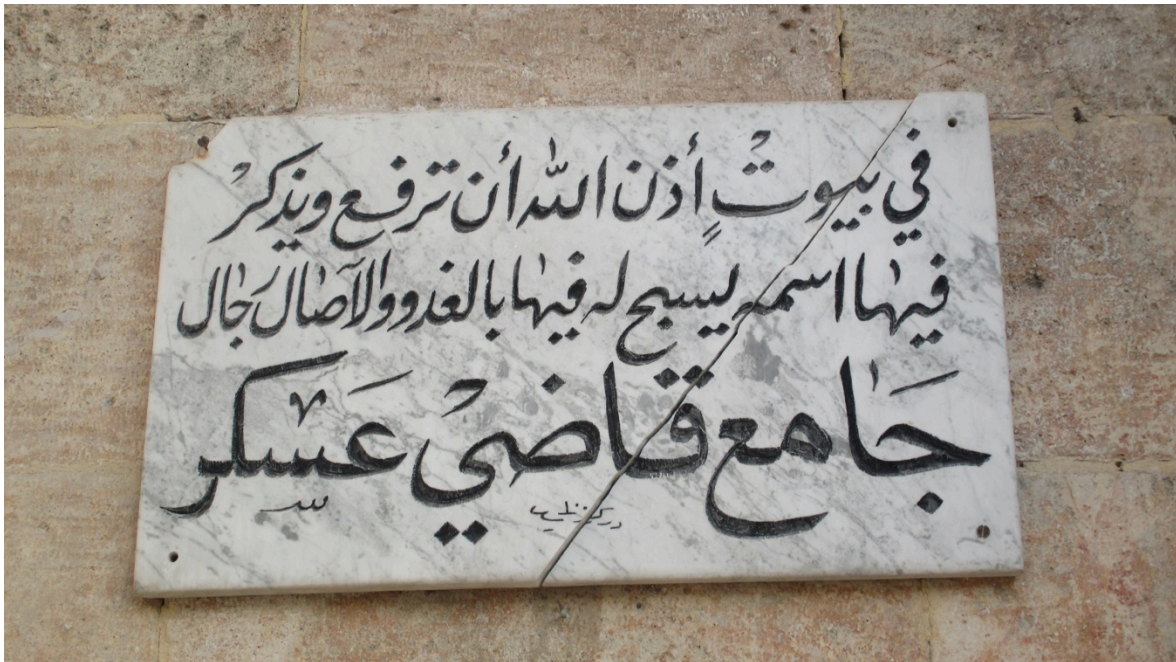 في بيوتٍ أذن الله أن ترفع ويذكر
فيها اسمه يسبح له فيها بالغدو والآصال رجال
جامع قاضي عسكر